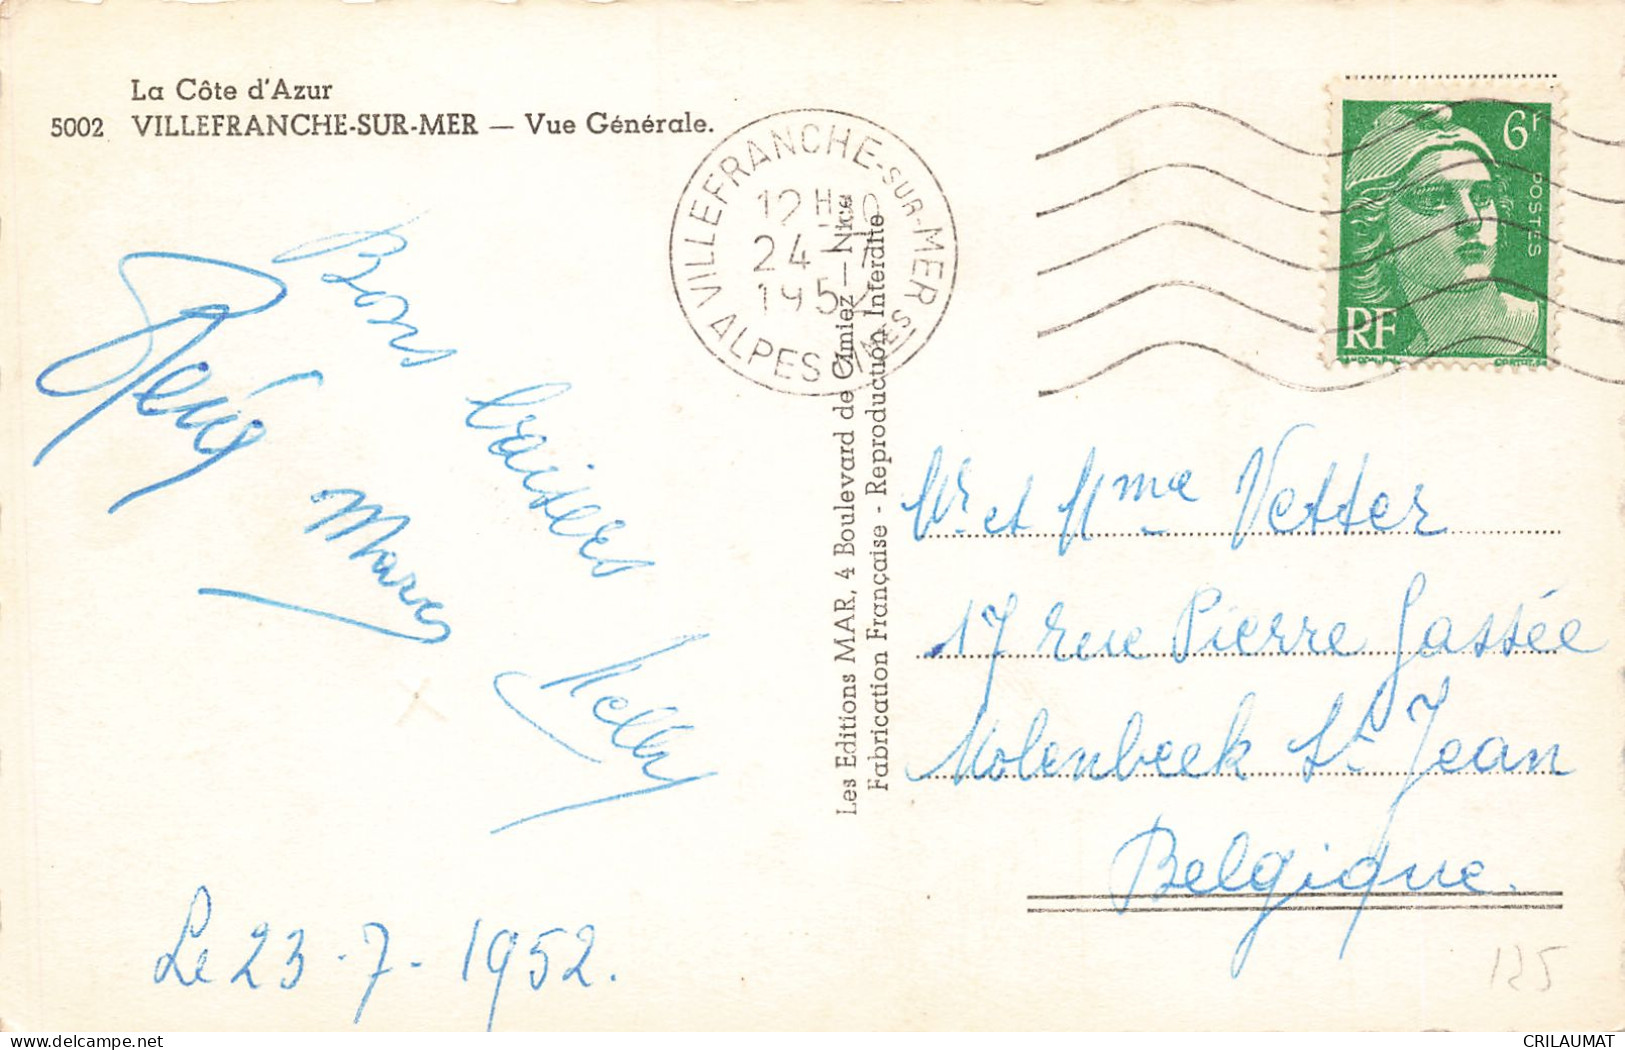 La Côte d'Azur
5002 VILLEFRANCHE-SUR-MER — Vue Générale.
VILLEFRANCHE-SUR-MER
ALPES
12H
24 - 7
1952
6F
POSTES
RF
Bons baisers
Marc
Nelly
Le 23-7-1952.
Les Editions MAR, 4 Boulevard de Cimiez — Nice
Fabrication Française - Reproduction Interdite
Mr et Mme Vetter
17 rue Pierre Gassée
Molenbeek St Jean
Belgique.
125
CRILAUMAT